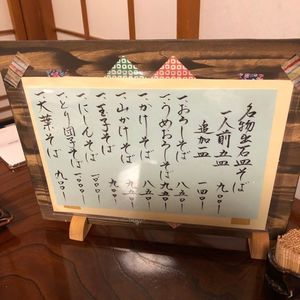 名物出石皿そば
一人前五皿 九〇〇ー
追加一皿 一四〇ー
一、おろしそば 八五〇ー
一、うめおろしそば 九五〇ー
一、かけそば 八五〇ー
一、山かけそば 九〇〇ー
一、玉子そば
一、にしんそば 一〇〇〇ー
一、とり団子そば 一〇〇〇ー
一、大葉そば 九〇〇ー